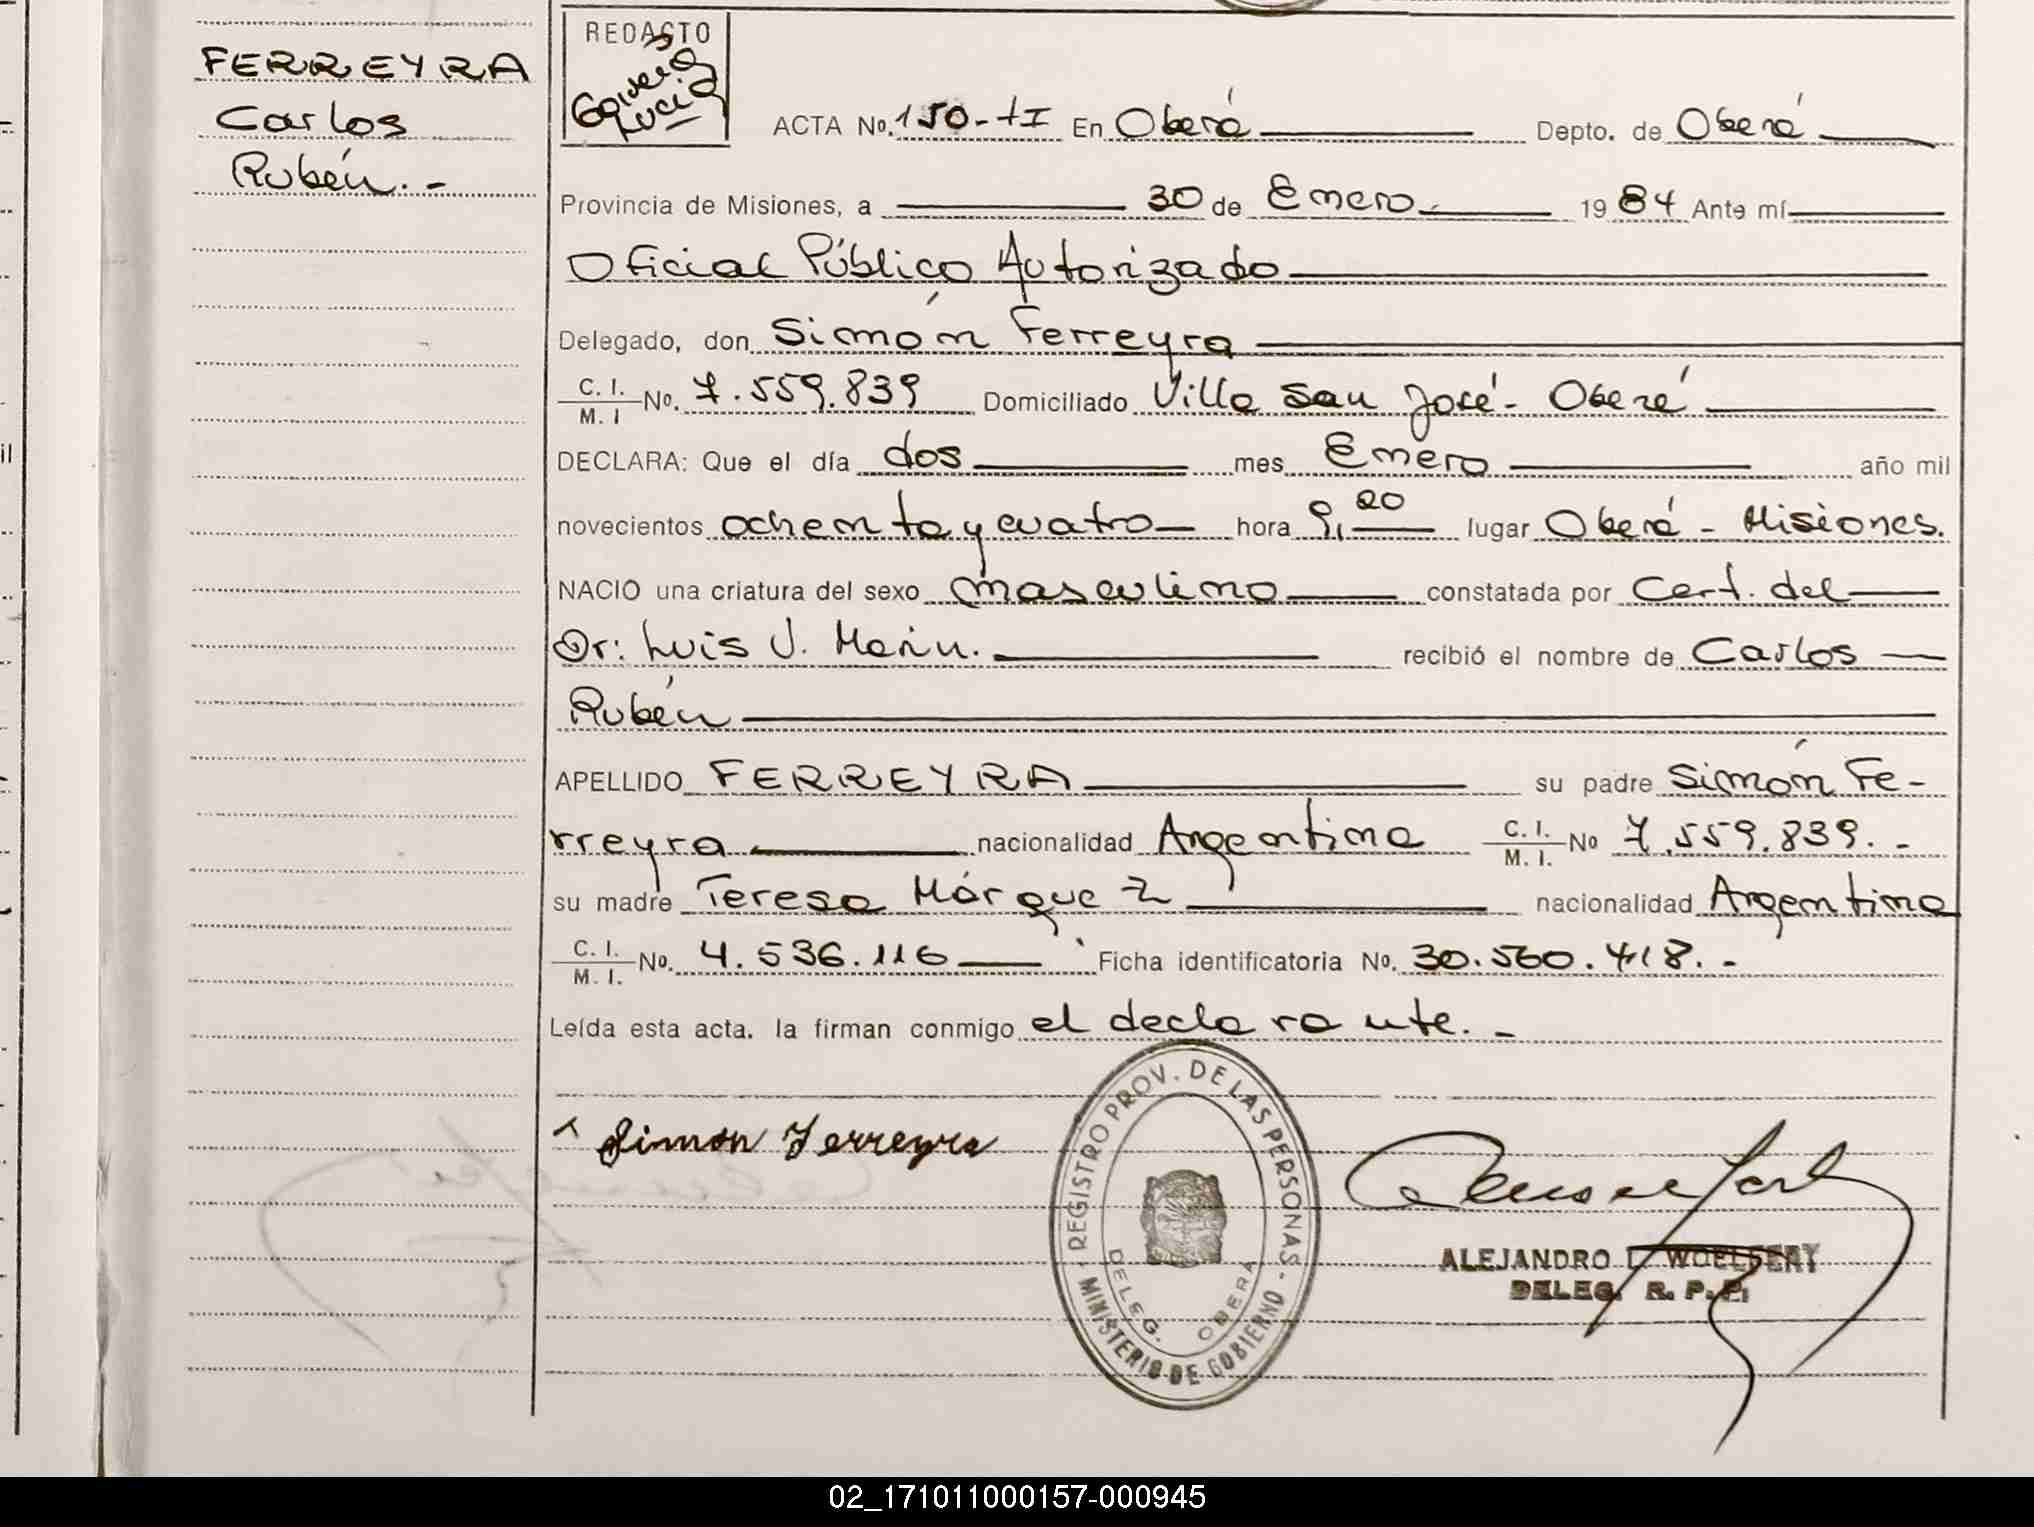 FERREYRA
Carlos
Rubén.-
REDACTO
ACTA No. 150-tI En Oberá Depto. de Oberá
Provincia de Misiones, a 30 de Enero 1984 Ante mí
Oficial Público Autorizado
Delegado, don Simón Ferreyra
C. I. / M. I No. 7.559.839 Domiciliado Villa San José - Oberá
DECLARA: Que el día dos mes Enero año mil
novecientos ochenta y cuatro hora 9,20 lugar Oberá - Misiones.
NACIO una criatura del sexo masculino constatada por Cert. del
Dr: Luis V. Marin. recibió el nombre de Carlos
Rubén
APELLIDO FERREYRA su padre Simón Fe-
rreyra nacionalidad Argentina C. I. / M. I. No 7.559.839.-
su madre Teresa Márquez nacionalidad Argentina
C. I. / M. I. No. 4.536.116 Ficha identificatoria No. 30.560.418.-
Leída esta acta. la firman conmigo el declarante.-
Simon Ferreyra
REGISTRO PROV. DE LAS PERSONAS - MINISTERIO DE GOBIERNO -
DELEG. OBERA
ALEJANDRO
DELEG. R. P. P.
02_171011000157-000945